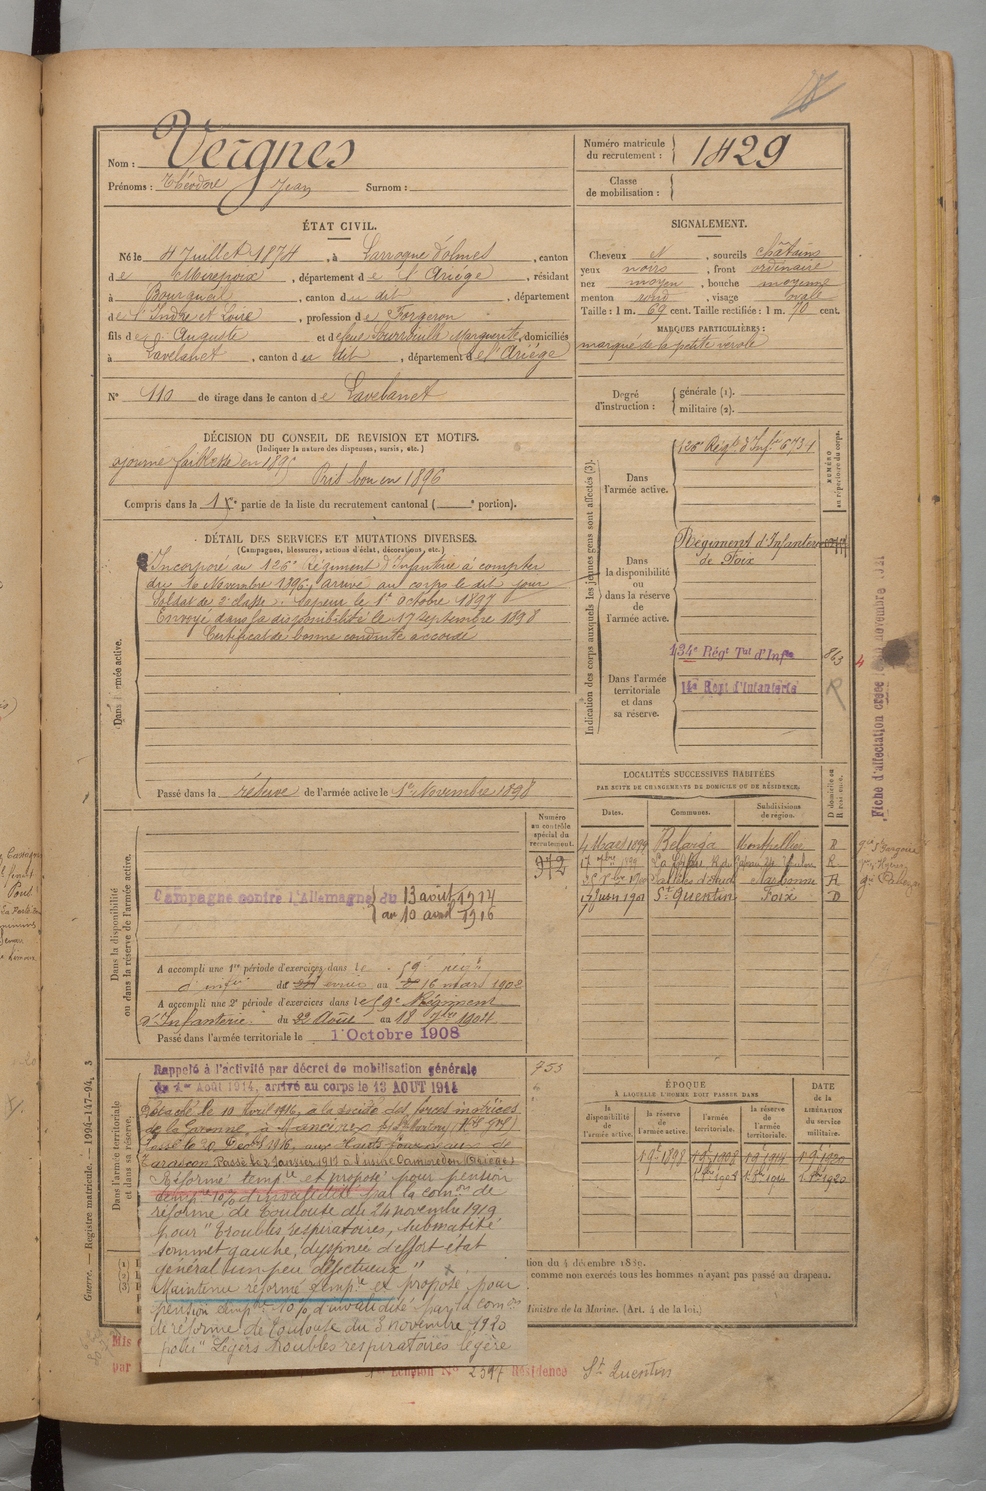 Nom : Vergnes
Prénoms : Théodore Jean Surnom :
Numéro matricule du recrutement : 1429
Classe de mobilisation :
ÉTAT CIVIL.
Né le 4 Juillet 1874, à Larroque d'Olmes, canton
de Mirepoix, département de l'Ariége, résidant
à Bourgueil, canton du dit, département
de l'Indre et Loire, profession de Forgeron
fils de Auguste et de feue Marguerite, domiciliés
à Lavelanet, canton du dit, département de l'Ariége
N° 110 de tirage dans le canton de Lavelanet
SIGNALEMENT.
Cheveux N, sourcils châtains
yeux noirs, front ordinaire
nez moyen, bouche moyenne
menton rond, visage ovale
Taille : 1 m. 69 cent. Taille rectifiée : 1 m. 70 cent.
MARQUES PARTICULIÈRES :
marqué de la petite vérole
Degré d'instruction : générale (1).
militaire (2).
DÉCISION DU CONSEIL DE REVISION ET MOTIFS.
(Indiquer la nature des dispenses, sursis, etc.)
ajourné faiblesse en 1895
Pris bon en 1896
Compris dans la 1re partie de la liste du recrutement cantonal ( e portion).
DÉTAIL DES SERVICES ET MUTATIONS DIVERSES.
(Campagnes, blessures, actions d'éclat, décorations, etc.)
Dans l'armée active.
Incorporé au 126e Régiment d'Infanterie à compter
du 10 Novembre 1896, arrivé au corps le dit jour
Soldat de 2e classe. Sapeur le 1er Octobre 1897
Envoyé dans la disponibilité le 17 septembre 1898
Certificat de bonne conduite accordé
Passé dans la réserve de l'armée active le 1er Novembre 1898
Indication des corps auxquels les jeunes gens sont affectés (3).
NUMÉRO au répertoire du corps.
Dans l'armée active.
126e Régt d'Inf. 6734
Dans la disponibilité ou dans la réserve de l'armée active.
Régiment d'Infanterie
de Foix
Dans l'armée territoriale et dans sa réserve.
134e Régt Tal d'Infie 863
14e Regt d'Infanterie R
LOCALITÉS SUCCESSIVES HABITÉES
PAR SUITE DE CHANGEMENTS DE DOMICILE OU DE RÉSIDENCE.
Dates. Communes. Subdivisions de région. D domicile ou R résidence.
4 Mars 1899 Belarga Montpellier R
Narbonne R
1901 St Quentin Foix D
Dans la disponibilité ou dans la réserve de l'armée active.
Numéro au contrôle spécial du recrutement.
972
Campagne contre l'Allemagne du 13 août 1914
au 10 avril 1916
A accompli une 1re période d'exercices dans le 59e régt
d'infie du février au 16 mars 1902
A accompli une 2e période d'exercices dans le 59e Régiment
d'Infanterie du 22 Août au 18 7bre 1904
Passé dans l'armée territoriale le 1 Octobre 1908
Dans l'armée territoriale et dans sa réserve.
Rappelé à l'activité par décret de mobilisation générale
du 1er Août 1914, arrivé au corps le 13 AOUT 1914
753
Détaché le 10 Avril 1916, à la société des forces motrices
de la Garonne, à
Passé le 1916, aux Hauts Fourneaux de
Tarascon. Passé le 2 Janvier 1917 à l'usine Camoredon (Ariége)
Réformé tempre et proposé pour pension
tempre 10% d'invalidité par la comon de
réforme de Toulouse du 24 novembre 1919
pour "Troubles respiratoires, submatité
sommet gauche, dyspnée d'effort état
général un peu défectueux"
Maintenu réformé tempre et proposé pour
pension tempre 10% d'invalidité par la comon
de réforme de Toulouse du 3 novembre 1920
pour "Légers troubles respiratoires légère
ÉPOQUE
À LAQUELLE L'HOMME DOIT PASSER DANS
la disponibilité de l'armée active. la réserve de l'armée active. l'armée territoriale. la réserve de l'armée territoriale.
DATE de la LIBÉRATION du service militaire.
1 9bre 1898 1 9bre 1908 1 9bre 1914 1 9bre 1920
1er 8bre 1908 1er 8bre 1914 1er 8bre 1920
tion du 4 décembre 1889.
comme non exercés tous les hommes n'ayant pas passé au drapeau.
Ministre de la Marine. (Art. 4 de la loi.)
Mis
par
Échelon N° 2597 Résidence St Quentin
Guerre. — Registre matricule. — 1994-147-94. 3
Fiche d'affectation créée le novembre 1921